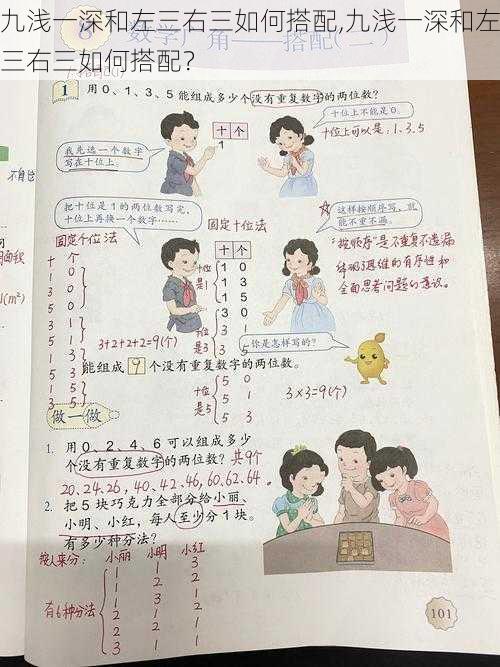 九浅一深和左三右三如何搭配,九浅一深和左
三右三如何搭配？
数学广角——搭配(二)
1 用 0、1、3、5 能组成多少个没有重复数字的两位数?
我先选一个数字
写在十位上。
十 个
1
十位上不能是 0。
十位上可以是:1.3.5
不自包
把十位是 1 的两位数写完,
十位上再换一个数字……
固定十位法
这样按顺序写,就
能不重不漏。
固定个位法
十 个
1 0
3 0
5 0
3 1
5 1
1 3
5 3
1 5
3 5
3+2+2+2=9(个)
十 个
十位是1
1 0
1 3
1 5
十位是3
3 0
3 1
3 5
十位是5
5 0
5 1
5 3
3×3=9(个)
"按顺序"是不重复不遗漏
体现了思维的有序性和
全面思考问题的意识。
你是怎样写的?
能组成 9 个没有重复数字的两位数。
做一做
1. 用 0、2、4、6 可以组成多少
个没有重复数字的两位数? 共9个
20、24、26、40、42、46、60、62、64.
2. 把 5 块巧克力全部分给小丽、
小明、小红,每人至少分 1 块。
有多少种分法?
按人来分: 小丽 小明 小红
1 1 3
1 2 2
1 3 1
有6种分法
2 1 2
2 2 1
3 1 1
101